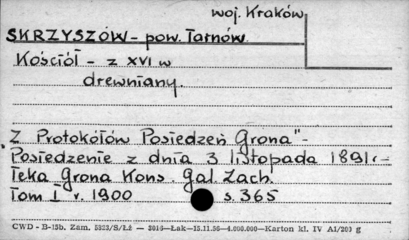 woj. Kraków
SKRZYSZÓW - pow. Tarnów
Kościół - z XVI w
drewniany.
„Z Protokółów Posiedzeń Grona" -
Posiedzenie z dnia 3 listopada 1891. -
Teka Grona Kons. Gal. Zach.
Tom I r. 1900 s. 365
CWD - B-15b. Zam. 5823/S/2.2 — 3016—Łak—15.11.56—4.000.000—Karton kl. IV A1/200 g